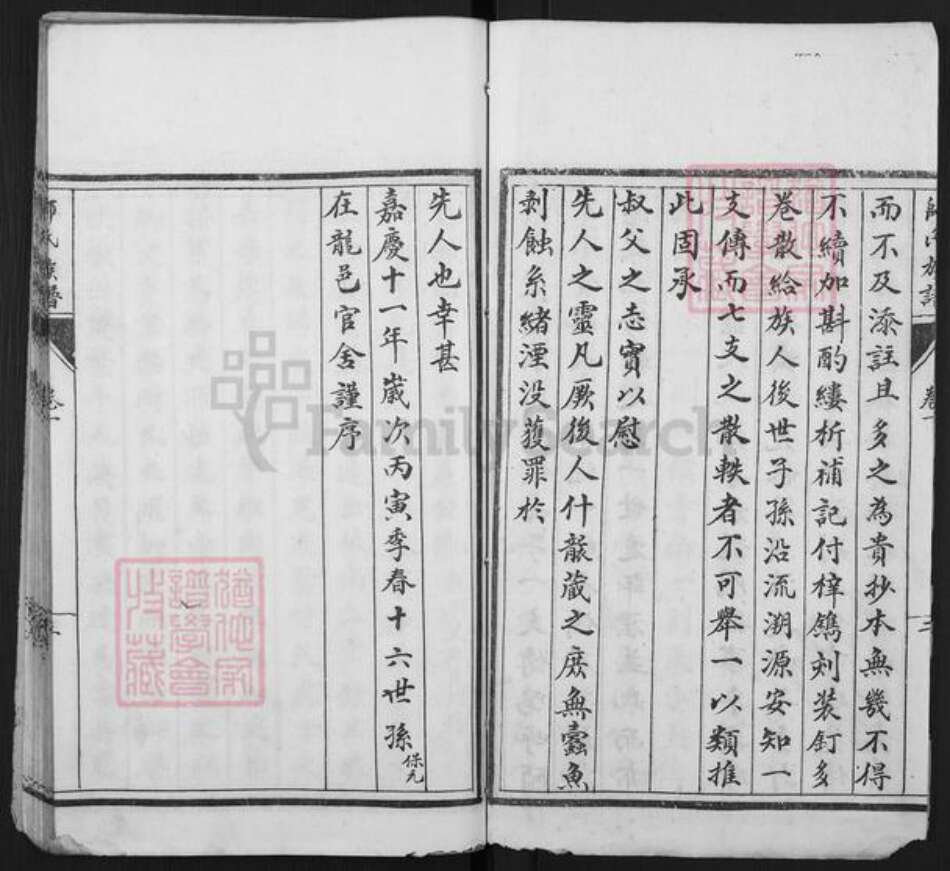 師氏族譜 卷一 三
而不及添註且多之為貴抄本無幾不得
不續加斟酌縷析補記付梓鐫刻裝釘多
卷散給族人後世子孫沿流溯源安知一
支傳而七支之散軼者不可舉一以類推
此固承
叔父之志實以慰
先人之靈凡厥後人什襲蔵之庶無蠹魚
剥蝕糸緒湮没獲罪於
先人也幸甚
嘉慶十一年歲次丙寅季春十六世孫保元
在龍邑官舍謹序
師氏族譜 卷一
FamilySearch